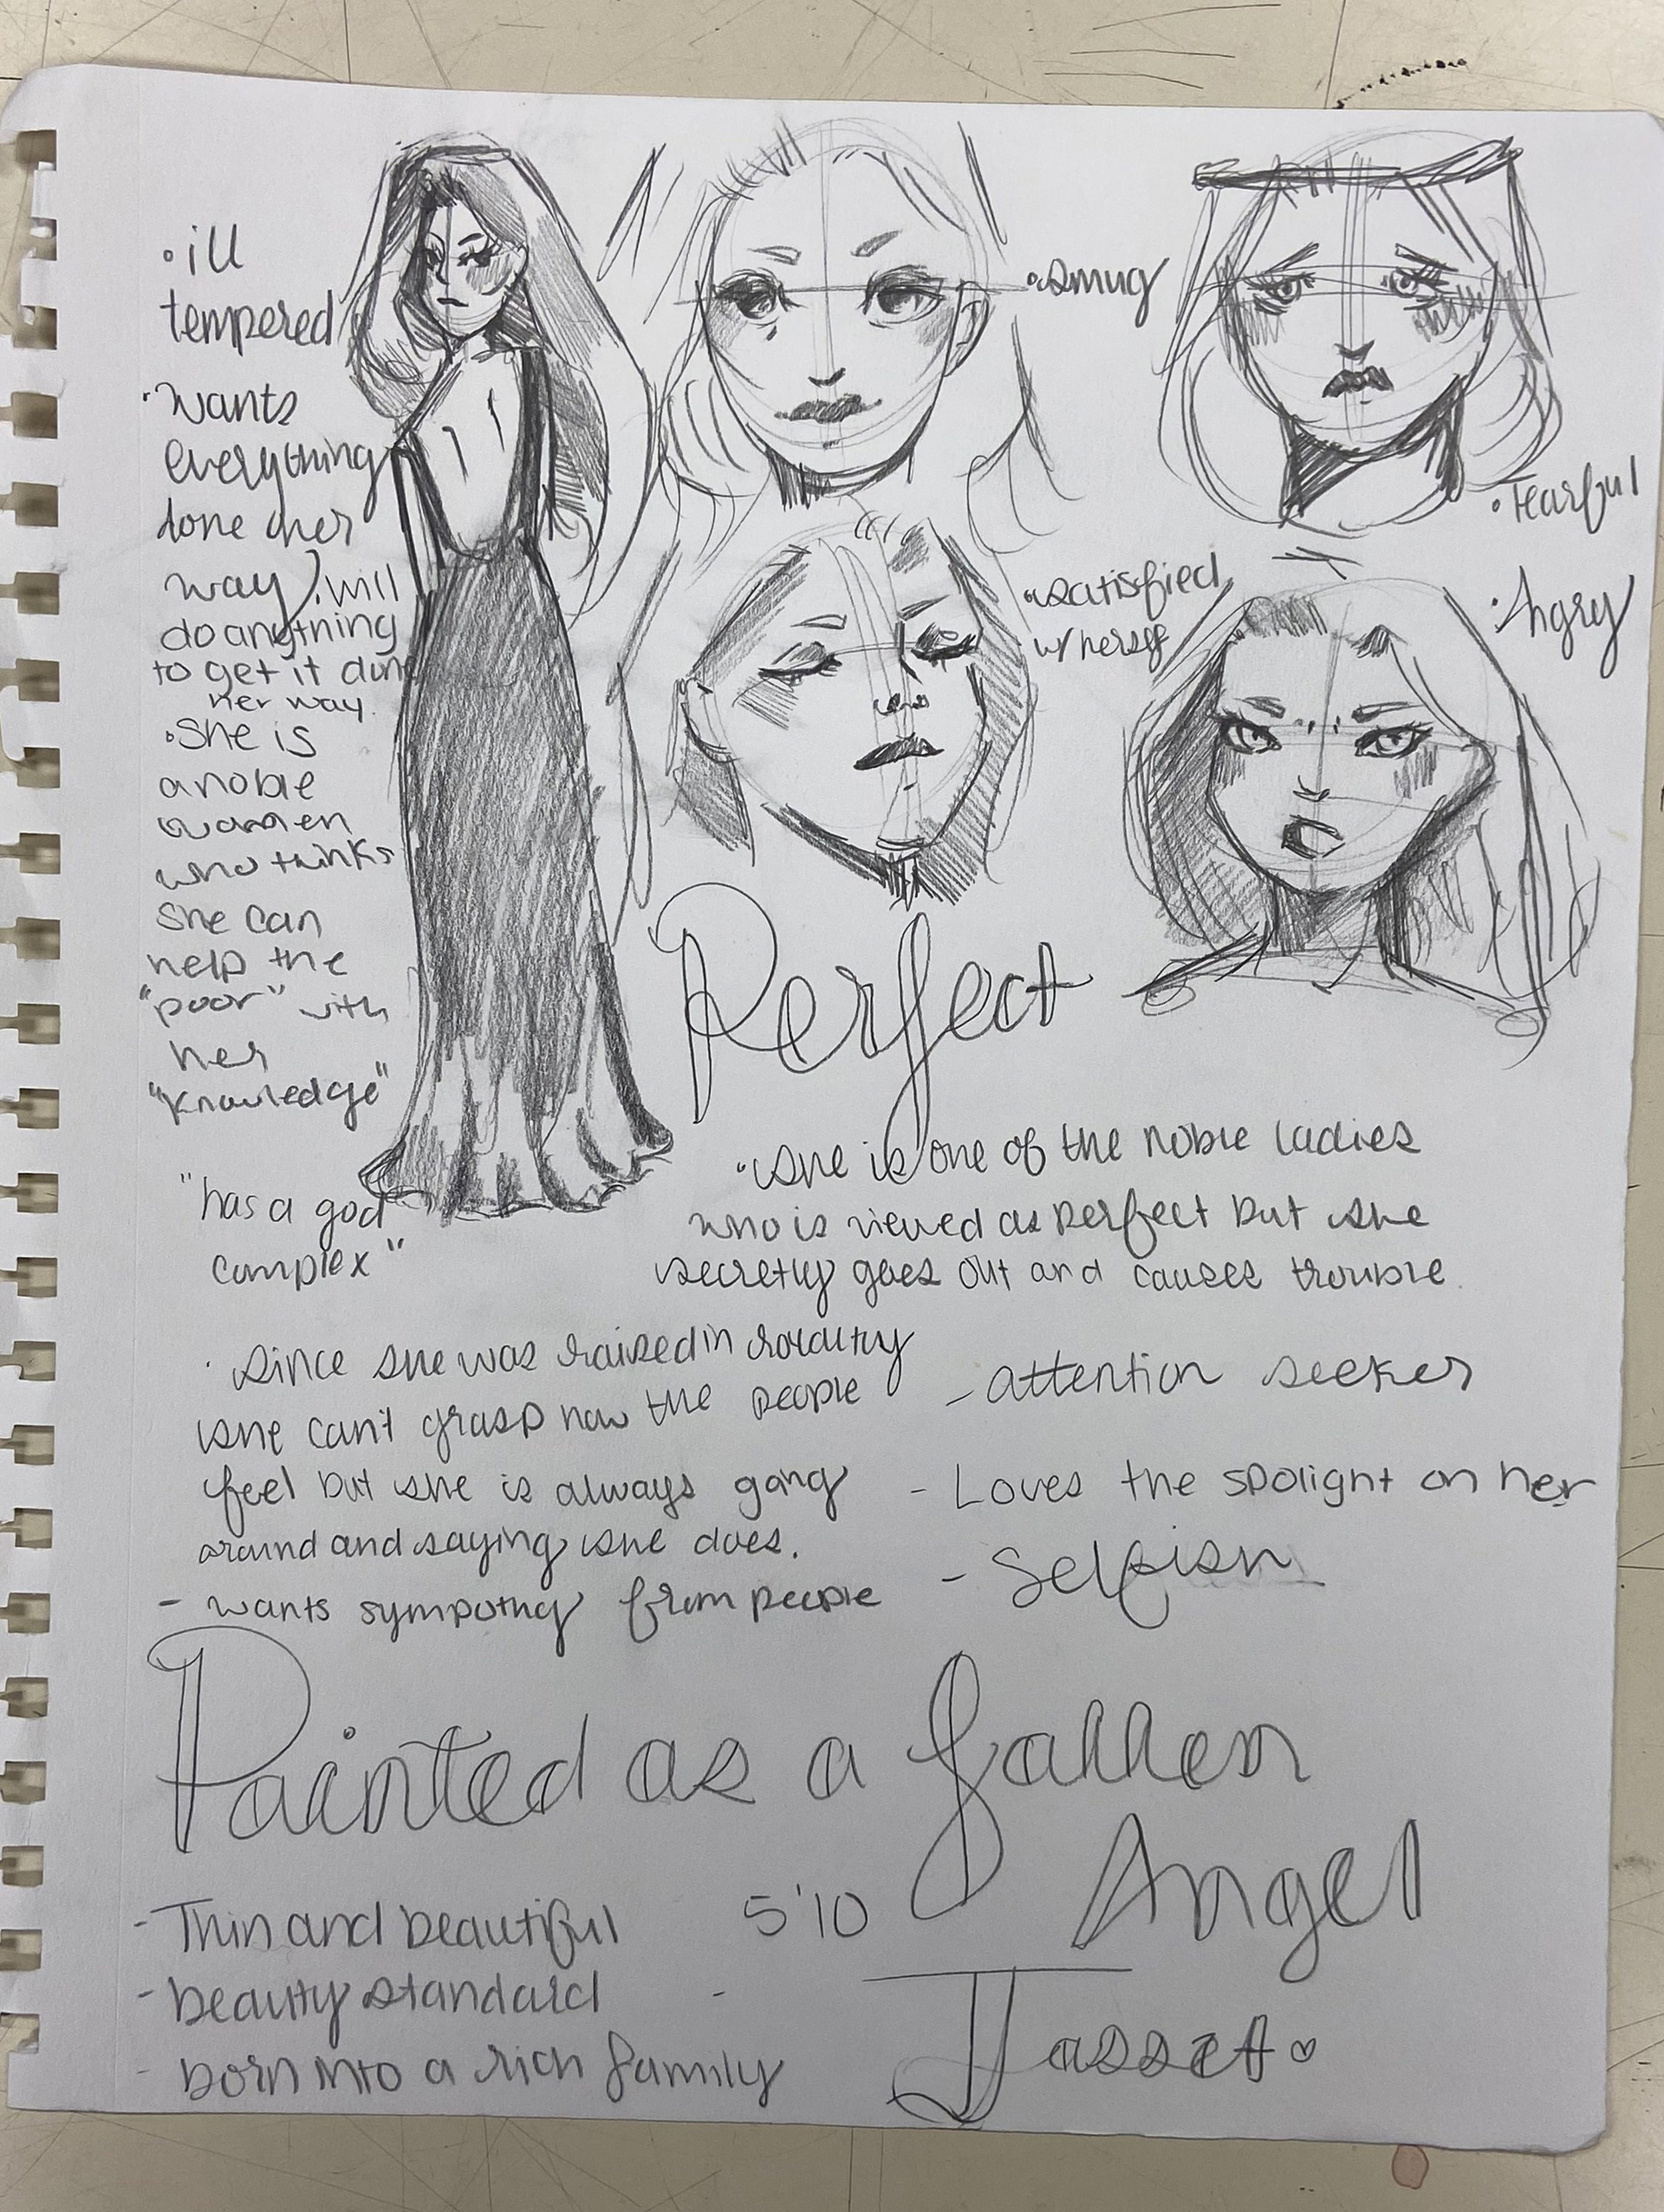 •ill
tempered
•wants
everything
done her
way, will
do anything
to get it done
her way.
•She is
a noble
women
who thinks
she can
help the
"poor" with
her
"knowledge"
"has a god
complex"
•smug
•tearful
•satisfied
w/ herself
•Angry
Perfect
•she is one of the noble ladies
who is viewed as perfect but she
secretly goes out and causes trouble.
•since she was raised in royalty
she can't grasp how the people
feel but she is always going
around and saying she does.
- wants sympathy from people
- attention seeker
- Loves the spolight on her
- Selfish
Painted as a fallen
Angel
- Thin and beautiful
- beauty standard
- born into a rich family
5'10
-
Jasset♡